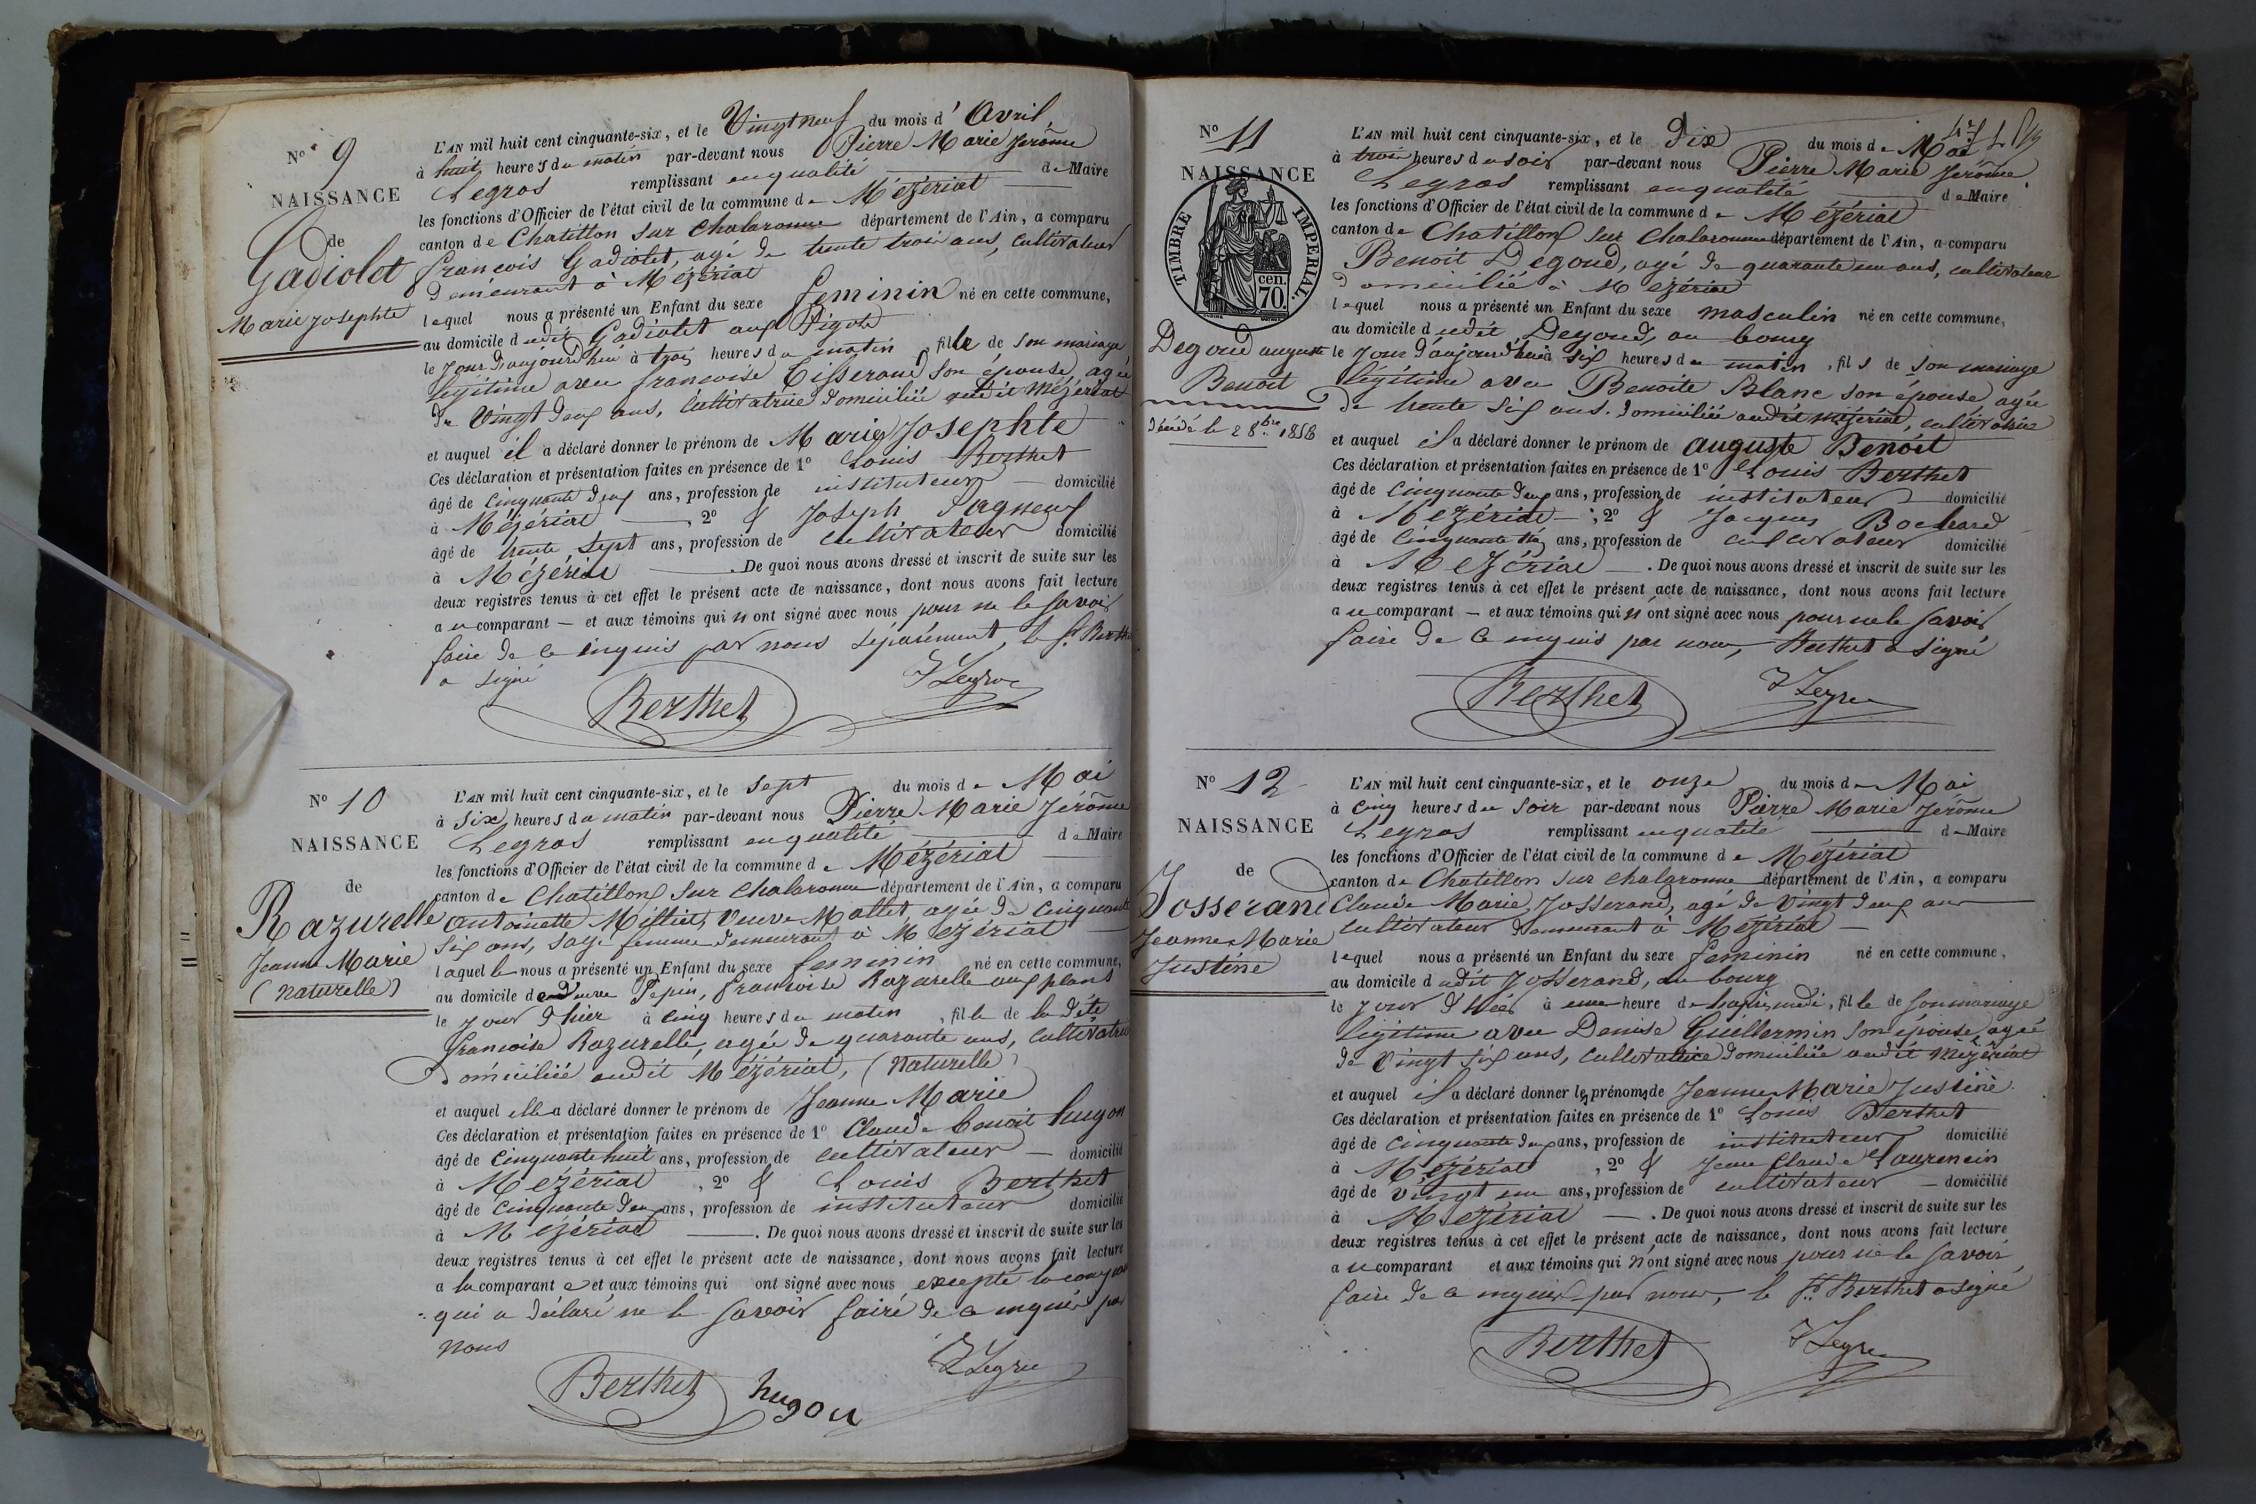 N° 9
NAISSANCE
de
Gadiolet
Marie Josephte
L'AN mil huit cent cinquante-six, et le Vingt neuf du mois d' Avril
à huit heures du matin par-devant nous Pierre Marie Jérôme
Legros remplissant en qualité de Maire
les fonctions d'Officier de l'état civil de la commune de Mézériat
canton de Chatillon sur Chalaronne département de l'Ain, a comparu
françois Gadiolet, agé de trente trois ans, cultivateur
demeurant à Mézériat
lequel nous a présenté un Enfant du sexe feminin né en cette commune,
au domicile dudit Gadiolet aux Pigots
le jour d'aujourd'hui à trois heures du matin, fille de son mariage
légitime avec françoise Tisserand son épouse, agée
de Vingt deux ans, cultivatrice domiciliée audit Mézériat
et auquel il a déclaré donner le prénom de Marie Josephte
Ces déclaration et présentation faites en présence de 1° Louis Berthet
âgé de cinquante deux ans, profession de instituteur domicilié
à Mézériat, 2° & Joseph Pagneux
âgé de trente sept ans, profession de cultivateur domicilié
à Mézériat. De quoi nous avons dressé et inscrit de suite sur les
deux registres tenus à cet effet le présent acte de naissance, dont nous avons fait lecture
au comparant et aux témoins qui n'ont signé avec nous pour ne le savoir
faire de ce enquis par nous séparément, le Sr Berthet
a signé
Berthet Legros
N° 10
NAISSANCE
de
Razurelle
Jeanne Marie
(naturelle)
L'AN mil huit cent cinquante-six, et le sept du mois de Mai
à six heures du matin par-devant nous Pierre Marie Jérôme
Legros remplissant en qualité de Maire
les fonctions d'Officier de l'état civil de la commune de Mézériat
canton de Chatillon sur Chalaronne département de l'Ain, a comparu
antoinette Veuve Mallet, agée de cinquante
six ans, sage femme demeurant à Mézériat
laquelle nous a présenté un Enfant du sexe feminin né en cette commune,
au domicile de Pepin, françoise Razurelle aux plans
le jour d'hier à cinq heures du matin, fille de la dite
françoise Razurelle, agée de quarante ans, cultivatrice
domiciliée audit Mézériat, (Naturelle)
et auquel elle a déclaré donner le prénom de Jeanne Marie
Ces déclaration et présentation faites en présence de 1° Claude benoit hugon
âgé de cinquante huit ans, profession de cultivateur domicilié
à Mézériat, 2° & Louis Berthet
âgé de cinquante deux ans, profession de instituteur domicilié
à Mézériat. De quoi nous avons dressé et inscrit de suite sur les
deux registres tenus à cet effet le présent acte de naissance, dont nous avons fait lecture
a la comparante et aux témoins qui ont signé avec nous excepté la comparante
qui a déclaré ne le savoir faire de ce enquis par
nous
Berthet hugon Legros
N° 11
NAISSANCE
TIMBRE IMPERIAL.
cen.
70.
Degoud auguste
Benoit
décédé le 28 bre 1856
L'AN mil huit cent cinquante-six, et le Dix du mois de Mai
à trois heures du soir par-devant nous Pierre Marie Jérôme
Legros remplissant en qualité de Maire
les fonctions d'Officier de l'état civil de la commune de Mézériat
canton de Chatillon sur Chalaronne département de l'Ain, a comparu
Benoit Degoud, agé de quarante un ans, cultivateur
domicilié à Mézériat
lequel nous a présenté un Enfant du sexe masculin né en cette commune,
au domicile dudit Degoud, au bourg
le jour d'aujourd'hui à six heures du matin, fils de son mariage
légitime avec Benoite Blanc son épouse agée
de trente six ans, domiciliée audit Mézériat, cultivatrice
et auquel il a déclaré donner le prénom de auguste Benoit
Ces déclaration et présentation faites en présence de 1° Louis Berthet
âgé de cinquante deux ans, profession de instituteur domicilié
à Mézériat, 2° & Jacques Bochard
âgé de cinquante six ans, profession de cultivateur domicilié
à Mézériat. De quoi nous avons dressé et inscrit de suite sur les
deux registres tenus à cet effet le présent acte de naissance, dont nous avons fait lecture
au comparant et aux témoins qui n'ont signé avec nous pour ne le savoir
faire de ce enquis par nous, Berthet a signé
Berthet Legros
N° 12
NAISSANCE
de
Josserand
Jeanne Marie
Justine
L'AN mil huit cent cinquante-six, et le onze du mois de Mai
à cinq heures du soir par-devant nous Pierre Marie Jérôme
Legros remplissant en qualité de Maire
les fonctions d'Officier de l'état civil de la commune de Mézériat
canton de Chatillon sur Chalaronne département de l'Ain, a comparu
Claude Marie Josserand, agé de Vingt deux ans
cultivateur demeurant à Mézériat
lequel nous a présenté un Enfant du sexe feminin né en cette commune,
au domicile dudit Josserand, au bourg
le jour d'hier à une heure de l'après midi, fille de son mariage
légitime avec Denise Guillermin son épouse, agée
de Vingt six ans, cultivatrice domiciliée audit Mézériat
et auquel il a déclaré donner les prénoms de Jeanne Marie Justine
Ces déclaration et présentation faites en présence de 1° Louis Berthet
âgé de cinquante deux ans, profession de instituteur domicilié
à Mézériat, 2° & Jean Claude Laurencin
âgé de vingt un ans, profession de cultivateur domicilié
à Mézériat. De quoi nous avons dressé et inscrit de suite sur les
deux registres tenus à cet effet le présent acte de naissance, dont nous avons fait lecture
au comparant et aux témoins qui n'ont signé avec nous pour ne le savoir
faire de ce enquis par nous, le Sr Berthet a signé
Berthet Legros